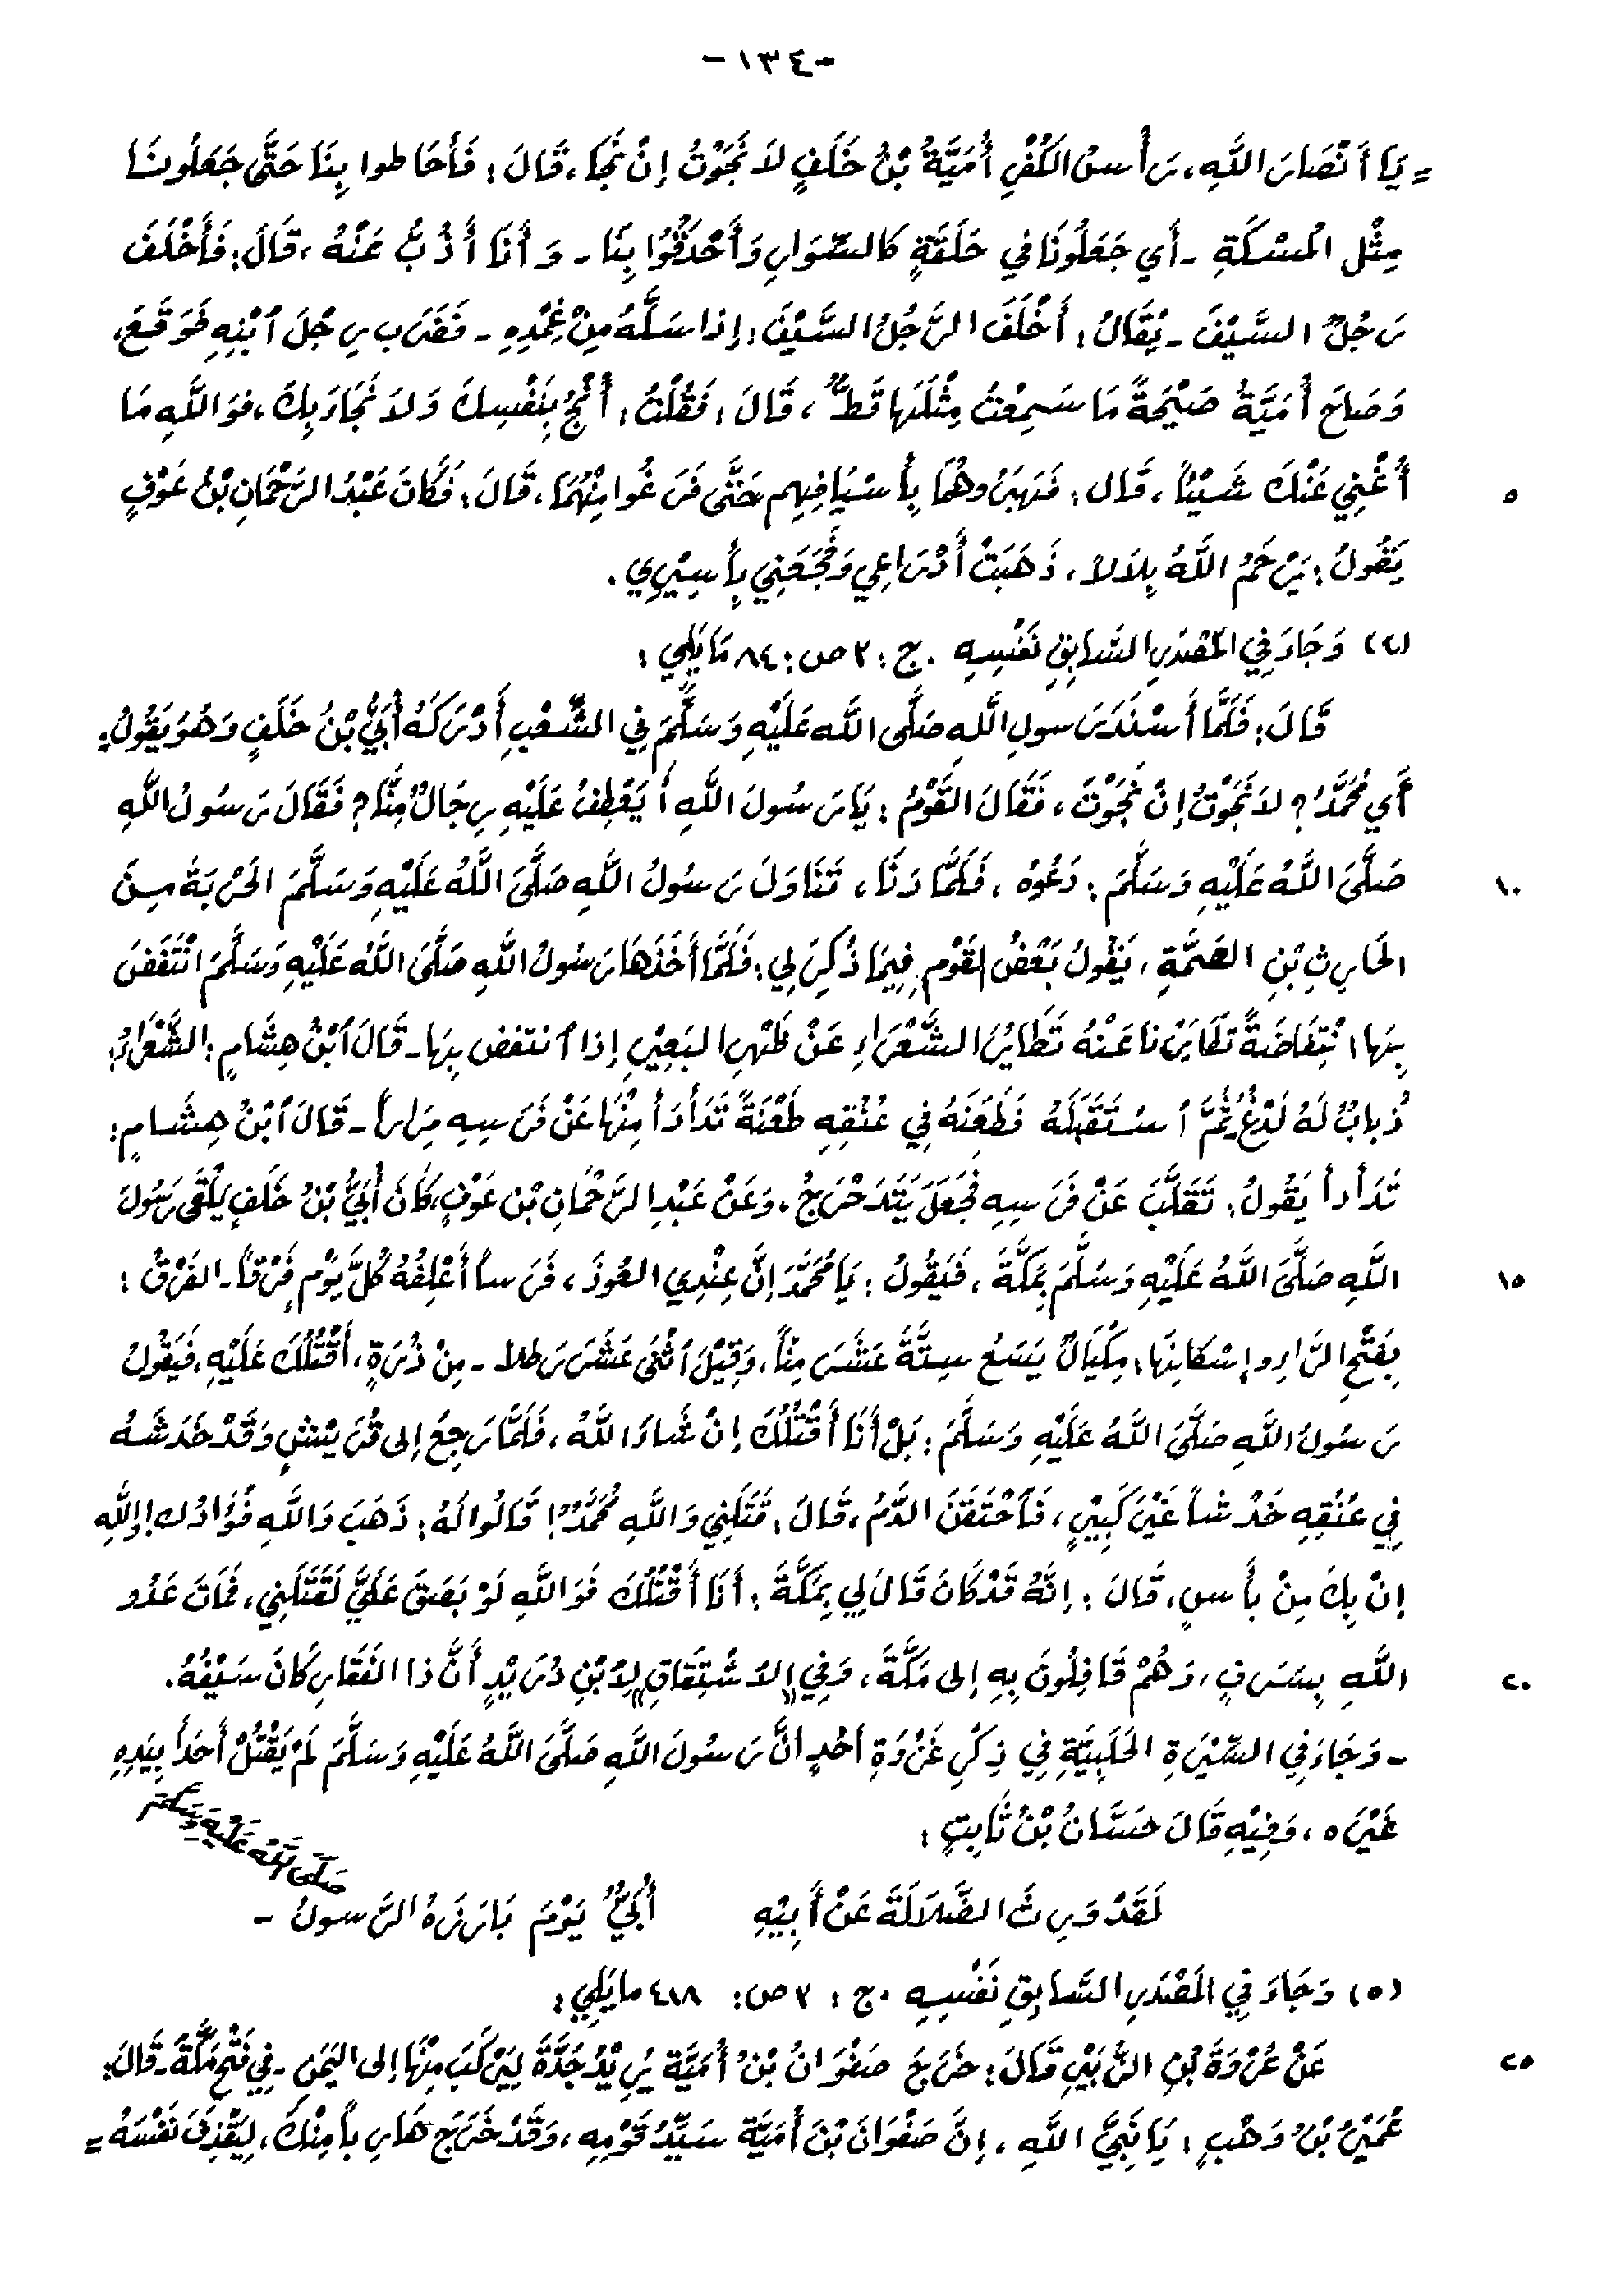 -١٣٤-
= يَا أَنْصَارَ اللَّهِ، رَأْسُ الكُفْرِ أُمَيَّةُ بْنُ خَلَفٍ لاَ نَجَوْتُ إِنْ نَجَا، قَالَ: فَأَحَاطوا بِنَا حَتَّى جَعَلُونَا
مِثْلِ المَسْكَةِ - أَي جَعَلُونَا في حَلَقَةٍ كَالسِّوَارِ وَأَحْدَقُوا بِنَا - وَأَنَا أَذُبُّ عَنْهُ، قَالَ: فَأَخْلَفَ
رَجُلٌ السَّيْفَ - يُقَالُ: أَخْلَفَ الرَّجُلُ السَّيْفَ: إذا سَلَّهُ مِنْ غِمْدِهِ - فَضَرَب رِجْلَ ٱبْنِهِ فَوَقَعَ،
وَصَاحَ أُمَيَّةُ صَيْحَةً مَا سَمِعْتُ مِثْلَهَا قَطُّ، قَالَ: فَقُلْتُ: ٱنْجُ بِنَفْسِكَ وَلاَ نَجَاءَ بِكَ، فَوَاللَّهِ مَا
٥ أُغْنِي عَنْكَ شَيْئاً، قَال: فَهَبَرُوهُمَا بِأَسْيَافِهِم حَتَّى فَرَغُوا مِنْهُمَا، قَالَ: فَكَانَ عَبْدُ الرَّحْمَانِ بْنُ عَوْفٍ
يَقُولُ: يَرْحَمُ اللَّهُ بِلاَلاً، ذَهَبَتْ أَدْرَاعِي وَفَجَعَنِي بِأَسِيْرِي.
(٤) وَجَاءَ فِي المَصْدَرِ السَّابِقِ نَفْسِهِ . ج: ٢ ص: ٨٤ مَا يَلِي:
قَالَ: فَلَمَّا أَسْنَدَ رَسولِ اللَّهِ صَلَّى اللَّه عَلَيْهِ وَسَلَّمَ فِي الشِّعْبِ أَدْرَكَهُ أُبَيُّ بْنُ خَلَفٍ وَهُوَ يَقُولُ:
أَي مُحَمَّدُ؟ لاَ نَجَوْتُ إِنْ نَجَوْتَ، فَقَالَ القَوْمُ: يَا رَسُولَ اللَّهِ أَيَعْطِفُ عَلَيْهِ رِجَالٌ مِنَّا؟ فَقَالَ رَسُولُ اللَّهِ
١٠ صَلَّى اللَّهُ عَلَيْهِ وَسَلَّمَ: دَعُوهُ، فَلَمَّا دَنَا، تَنَاوَلَ رَسُولُ اللَّهِ صَلَّى اللَّهُ عَلَيْهِ وَسَلَّمَ الحَرْبَةُ مِنَ
الحَارِثِ بْنِ الصِّمَّةِ، يَقُولُ بَعْضُ القَوْمِ فِيمَا ذُكِرَ لِي: فَلَمَّا أَخَذَهَا رَسُولُ اللَّهِ صَلَّى اللَّهُ عَلَيْهِ وَسَلَّمَ انْتَفَضَ
بِهَا انْتِفَاضَةً تَطَايَرْنا عَنْهُ تَطَايُرَ الشَّعْرَاءِ عَنْ ظَهْرِ البَعِيْرِ إذا ٱنتفض بِهَا - قَالَ ٱبْنُ هِشَامٍ: الشَّعْرَاءُ:
ذُبابٌ لَهُ لَدْغٌ، ثُمَّ ٱسْتَقْبَلَهُ فَطَعَنَهُ فِي عُنُقِهِ طَعْنَةً تَدَأْدَأَ مِنْهَا عَنْ فَرَسِهِ مِرَاراً - قَالَ ٱبْنُ هِشَامٍ:
تَدَأدأ يَقُولُ: تَقَلَّبَ عَنْ فَرَسِهِ فَجَعَلَ يَتَدَحْرَجُ. وَعَنْ عَبْدِ الرَّحْمَانِ بْنِ عَوْفٍ، كَانَ أُبَيُّ بْنُ خَلَفٍ يَلْقَى رَسُولَ
١٥ اللَّهِ صَلَّى اللَّهُ عَلَيْهِ وَسَلَّمَ بِمَكَّةَ، فَيَقُولُ: يَا مُحَمَّدُ إنَّ عِنْدِي العُوذَ، فَرَساً أَعْلِفُهُ كُلَّ يَوْمٍ فَرْقاً - الفَرْقُ:
بِفَتْحِ الرَّاءِ وإسْكَانِهَا: مِكْيَالٌ يَسَعُ سِتَّةَ عَشَرَ مِنّاً، وَقِيْلَ ٱثْنَى عَشَرَ رَطلاً - مِنْ ذُرَةٍ، أَقْتُلُكَ عَلَيْهِ، فَيَقُولُ
رَسُولُ اللَّهِ صَلَّى اللَّهُ عَلَيْهِ وَسَلَّمَ: بَلْ أَنَا أَقْتُلُكَ إِنْ شَاءَ اللَّهُ، فَلَمَّا رَجِعَ إلى قُرَيْشٍ وَقَدْ خَدَشَهُ
فِي عُنُقِهِ خَدْشاً غَيْرَ كَبِيْرٍ، فَٱحْتَقَنَ الدَّمُ، قَالَ: قَتَلَنِي وَاللَّهِ مُحَمَّدٌ! قَالُوا لَهُ: ذَهَبَ وَاللَّهِ فُؤَادُك! وَاللَّهِ
إنْ بِكَ مِنْ بَأْسٍ، قَالَ: إنَّهُ قَدْ كَانَ قَالَ لِي بِمَكَّةَ: أَنَا أَقْتُلُكَ فَوَاللَّهِ لَوْ بَصَقَ عَلَيَّ لَقَتَلَنِي، فَمَاتَ عَدُو
٢٠ اللَّهِ بِسَرِفٍ، وَهُمْ قَافِلُونَ بِهِ إلى مَكَّةَ، وَفِي «الاشْتِقَاقِ» لِابْنِ دُرَيْدٍ أَنَّ ذا الفَقَارِ كَانَ سَيْفُهُ.
- وَجَاءَ فِي السِّيْرَةِ الحَلَبِيَّةِ فِي ذِكْرِ غَزْوَةِ أُحُدٍ أنَّ رَسُولَ اللَّهِ صَلَّى اللَّهُ عَلَيْهِ وَسَلَّمَ لَمْ يَقْتُلْ أَحَداً بِيَدِهِ
غَيْرَه، وَفِيْهِ قَالَ حَسَّانُ بْنُ ثَابِتٍ:
لَقَدْ وَرِثَ الضَّلاَلَةَ عَنْ أَبِيْهِ أُبَيٌّ يَوْمَ بَارَزَهُ الرَّسولُ - صَلَّى اللَّهُ عَلَيْهِ وَسَلَّمَ
(٥) وَجَاءَ فِي المَصْدَرِ السَّابِقِ نَفْسِهِ . ج: ٣ ص: ٤١٨ مايَلِي:
٢٥ عَنْ عُرْوَةَ بْنِ الزُّبَيْرِ قَالَ: خَرَجَ صَفْوَانُ بْنُ أُمَيَّة يُرِيْدُ جَدَّةَ لِيَرْكَبَ مِنْهَا إلى اليَمَنِ - فِي فَتْحِ مَكَّةَ - قَالَ:
عُمَيْرُ بْنُ وَهْبٍ: يَا نَبِيَّ اللَّهِ، إنَّ صَفْوَانَ بْنَ أُمَيَّة سَيِّدُ قَوْمِهِ، وَقَدْ خَرَجَ هَارِباً مِنْكَ، لِيَقْذِفَ نَفْسَهُ =